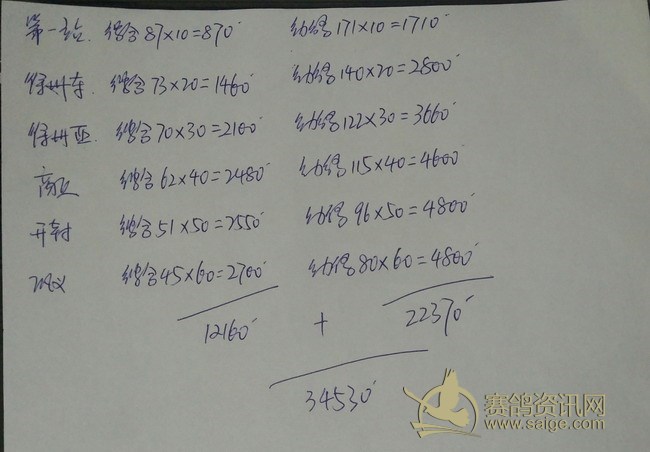 第一站. 87×10=870 171×10=1710
徐州东. 73×20=1460 140×20=2800
徐州 70×30=2100 122×30=3660
商丘 62×40=2480 115×40=4600
开封 51×50=2550 96×50=4800
巩义 45×60=2700 80×60=4800
12160 + 22370
34530
赛鸽资讯网
www.saige.com